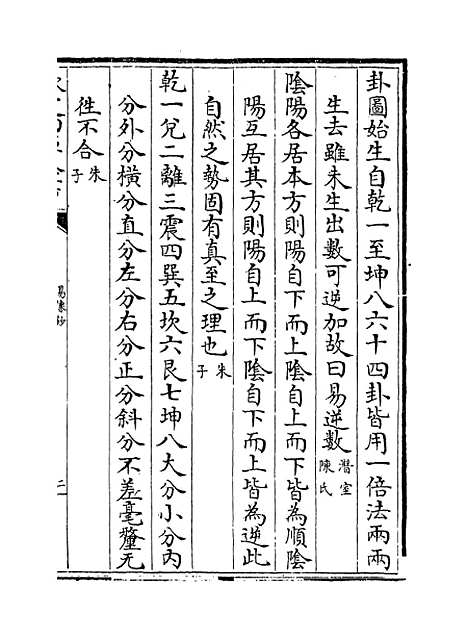 卦圖始生自乾一至坤八六十四卦皆用一倍法兩兩
生去雖未生出數可逆加故曰易逆數潛室陳氏
陰陽各居本方則陽自下而上陰自上而下皆為順陰
陽互居其方則陽自上而下陰自下而上皆為逆此
自然之勢固有真至之理也朱子
乾一兌二離三震四巽五坎六艮七坤八大分小分內
分外分橫分直分左分右分正分斜分不差毫釐无
徃不合朱子
易像鈔
二